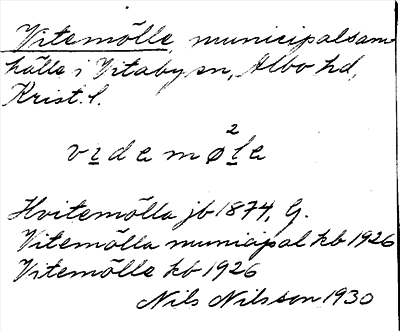 Vitemölle, municipalsam-
hälle i Vitaby sn, Albo hd,
Krist. l.
videmø²le
Hvitemölla jb 1874, G.
Vitemölla municipal kb 1926
Vitemölle kb 1926
Nils Nilsson 1930